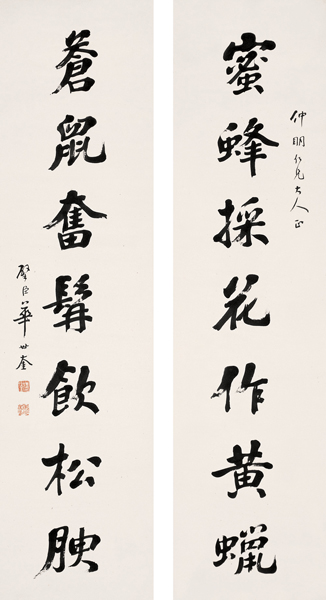 仲明仁兄大人正
蜜蜂採花作黃蠟
蒼鼠奮髯飲松腴
璧臣華世奎